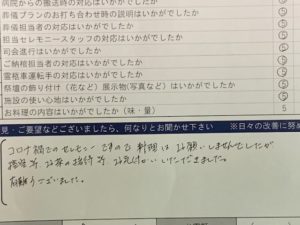 病院からの搬送時の対応はいかがでしたか ⑤
葬儀プランのお打ち合わせ時の説明はいかがでしたか ⑤
担当セレモニースタッフの対応はいかがでしたか ⑤
司会進行はいかがでしたか ⑤
ご納棺担当者の対応はいかがでしたか ⑤
霊柩車運転手の対応はいかがでしたか ⑤
祭壇の飾り付け(花など)展示物(写真など)はいかがでしたか ⑤
施設の使い心地はいかがでしたか ⑤
お料理の内容はいかがでしたか(味・量) 5
見・ご要望などございましたら、何なりとお聞かせ下さい ※日々の改善に努め
コロナ禍でのセレモニーですので料理はお願いしませんでしたが
お茶の接待等、お気付かいいただきました。
有難うございました。